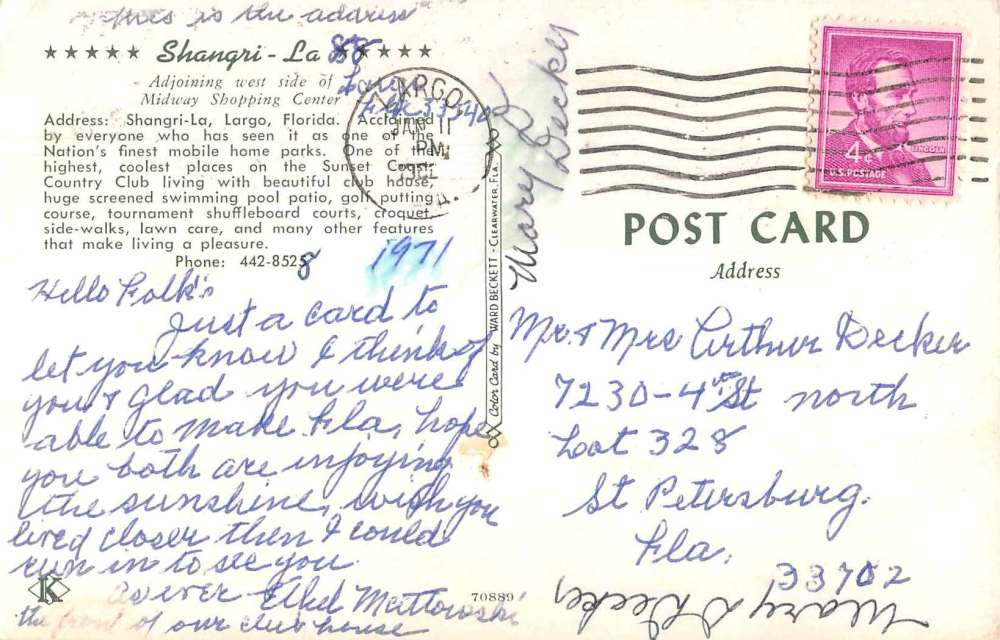 this is the address
★★★★★ Shangri-La ★★★★★
88
Adjoining west side of
Midway Shopping Center
Largo
Fla. 33540
Address: Shangri-La, Largo, Florida. Acclaimed
by everyone who has seen it as one of the
Nation's finest mobile home parks. One of the
highest, coolest places on the Sunset Coast.
Country Club living with beautiful club house,
huge screened swimming pool patio, golf putting
course, tournament shuffleboard courts, croquet,
side-walks, lawn care, and many other features
that make living a pleasure.
Phone: 442-8525
8
1971
Hello Folk's
Just a card to
let you know I think of
you & glad you were
able to make Fla, hope
you both are injoying
the sunshine, wish you
lived closer then I could
run in to see you.
as ever - Ethel Mattowski
the front of our club house
K
70889
LARGO
JAN 11
PM
Color Card by WARD BECKETT - CLEARWATER, FLA.
Mary D Decker
4¢
LINCOLN
U.S. POSTAGE
POST CARD
Address
Mr. & Mrs Arthur Decker
7230-4th St north
Loot 328
St Petersburg.
Fla.
33702
Mary D Decker